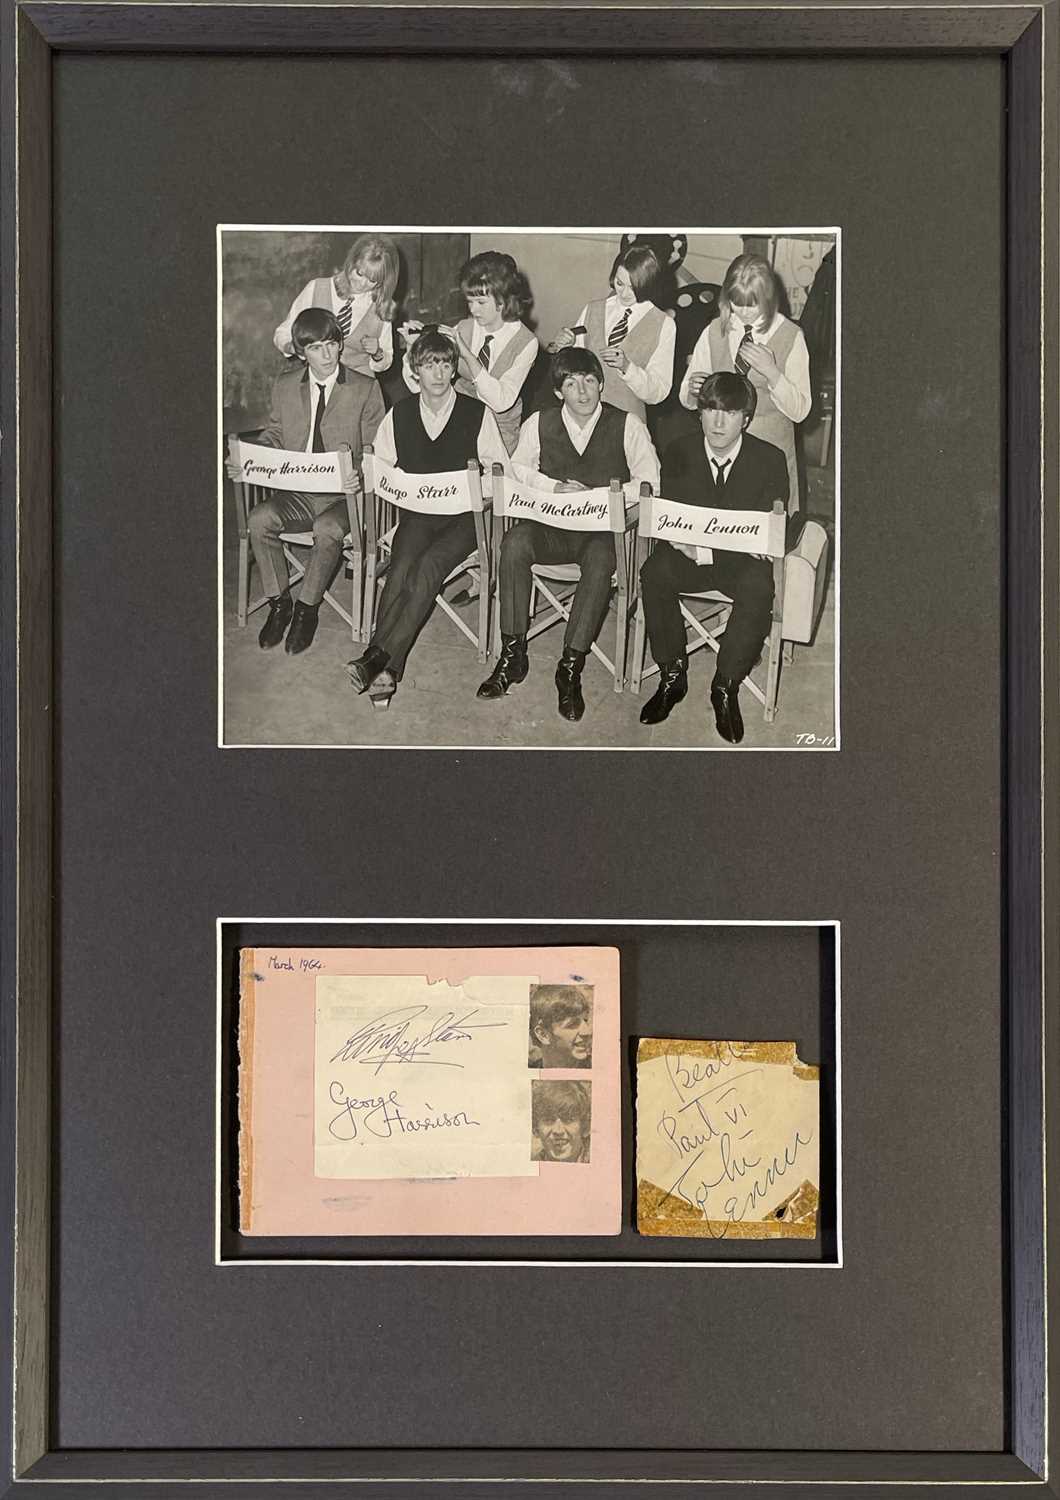 George Harrison
Ringo Starr
Paul McCartney
John Lennon
TB-11
March 1964.
Ringo Starr
George
Harrison
Paul VI
John
Lennon